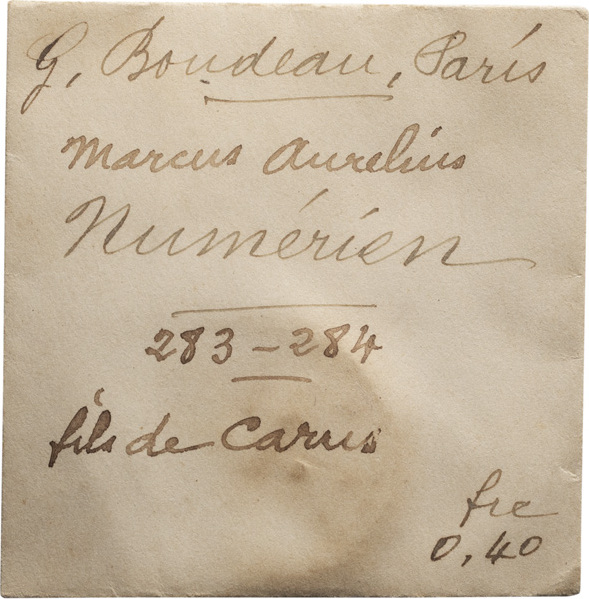 G, Boudeau, Paris
Marcus Aurelius
Numérien
283-284
fils de Carus
frc
0,40